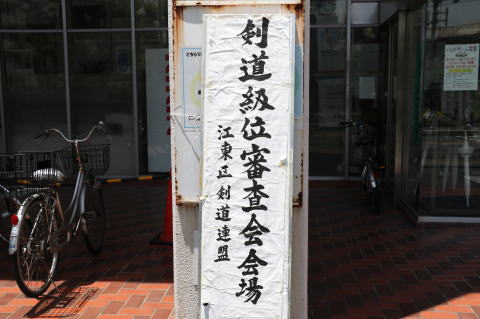 剣道級位審査会会場
江東区剣道連盟